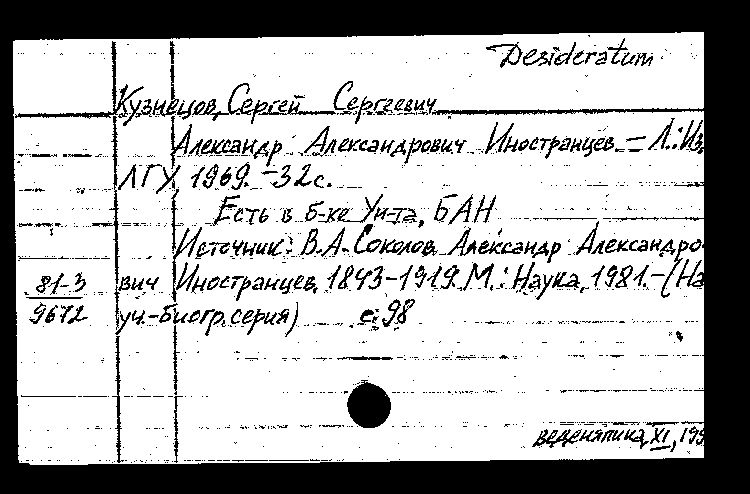 Desideratum
Кузнецов, Сергей Сергеевич
Александр Александрович Иностранцев. — Л.: Из
ЛГУ, 1969. — 32 с.
Есть в б-ке Ун-та, БАН
Источник: В.А. Соколов Александр Александро-
81-3 вич Иностранцев. 1843-1919. М.: Наука, 1981. — (На
9672 уч.-биогр. серия) с. 98
XI, 199